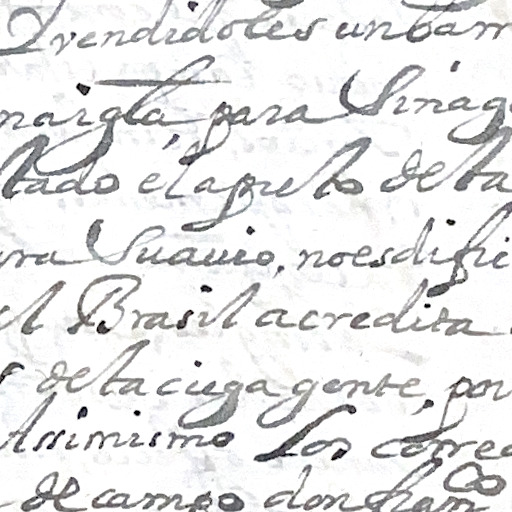 vendidoles un barr
na igla, para Sinag
tado el aprieto de la
ra Suauio, no es difi
el Brasil acredita
s de la ciega gente, por
Assimismo Los corre
de campo don fran co